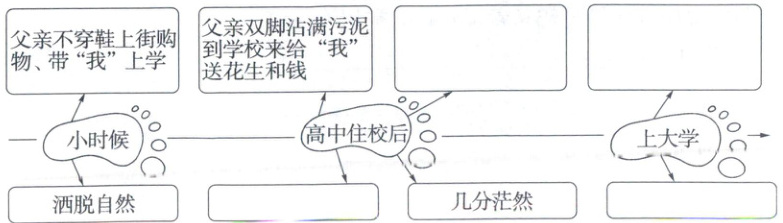 父亲不穿鞋上街购
物、带“我”上学
父亲双脚沾满污泥
到学校来给“我”
送花生和钱
小时候
高中住校后
上大学
洒脱自然
几分茫然